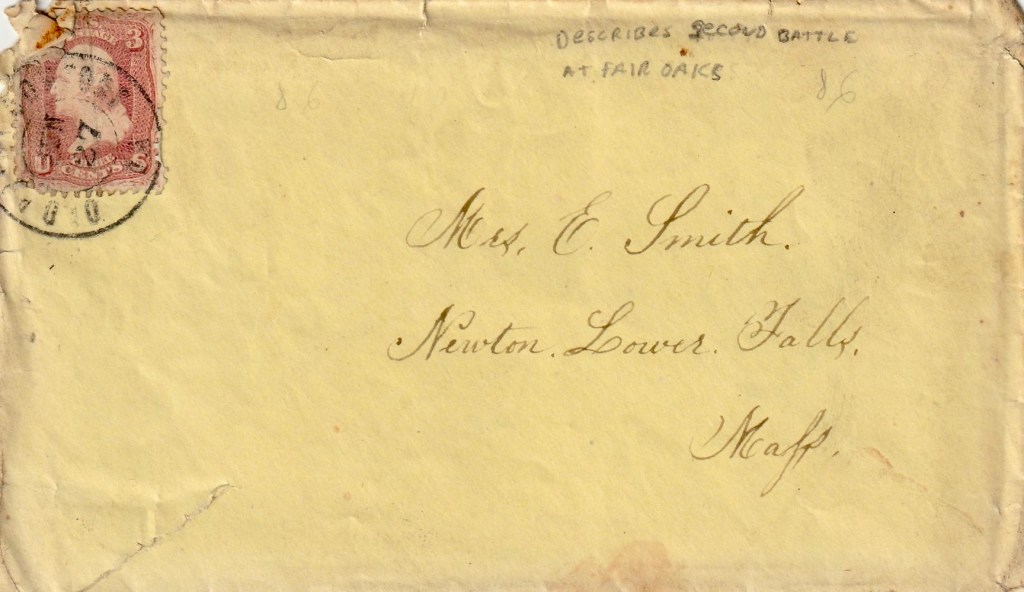 DESCRIBES SECOND BATTLE
AT FAIR OAKS
86
86
3
U S
CENTS
OLD
Mrs. E. Smith.
Newton. Lower. Falls.
Maſs.